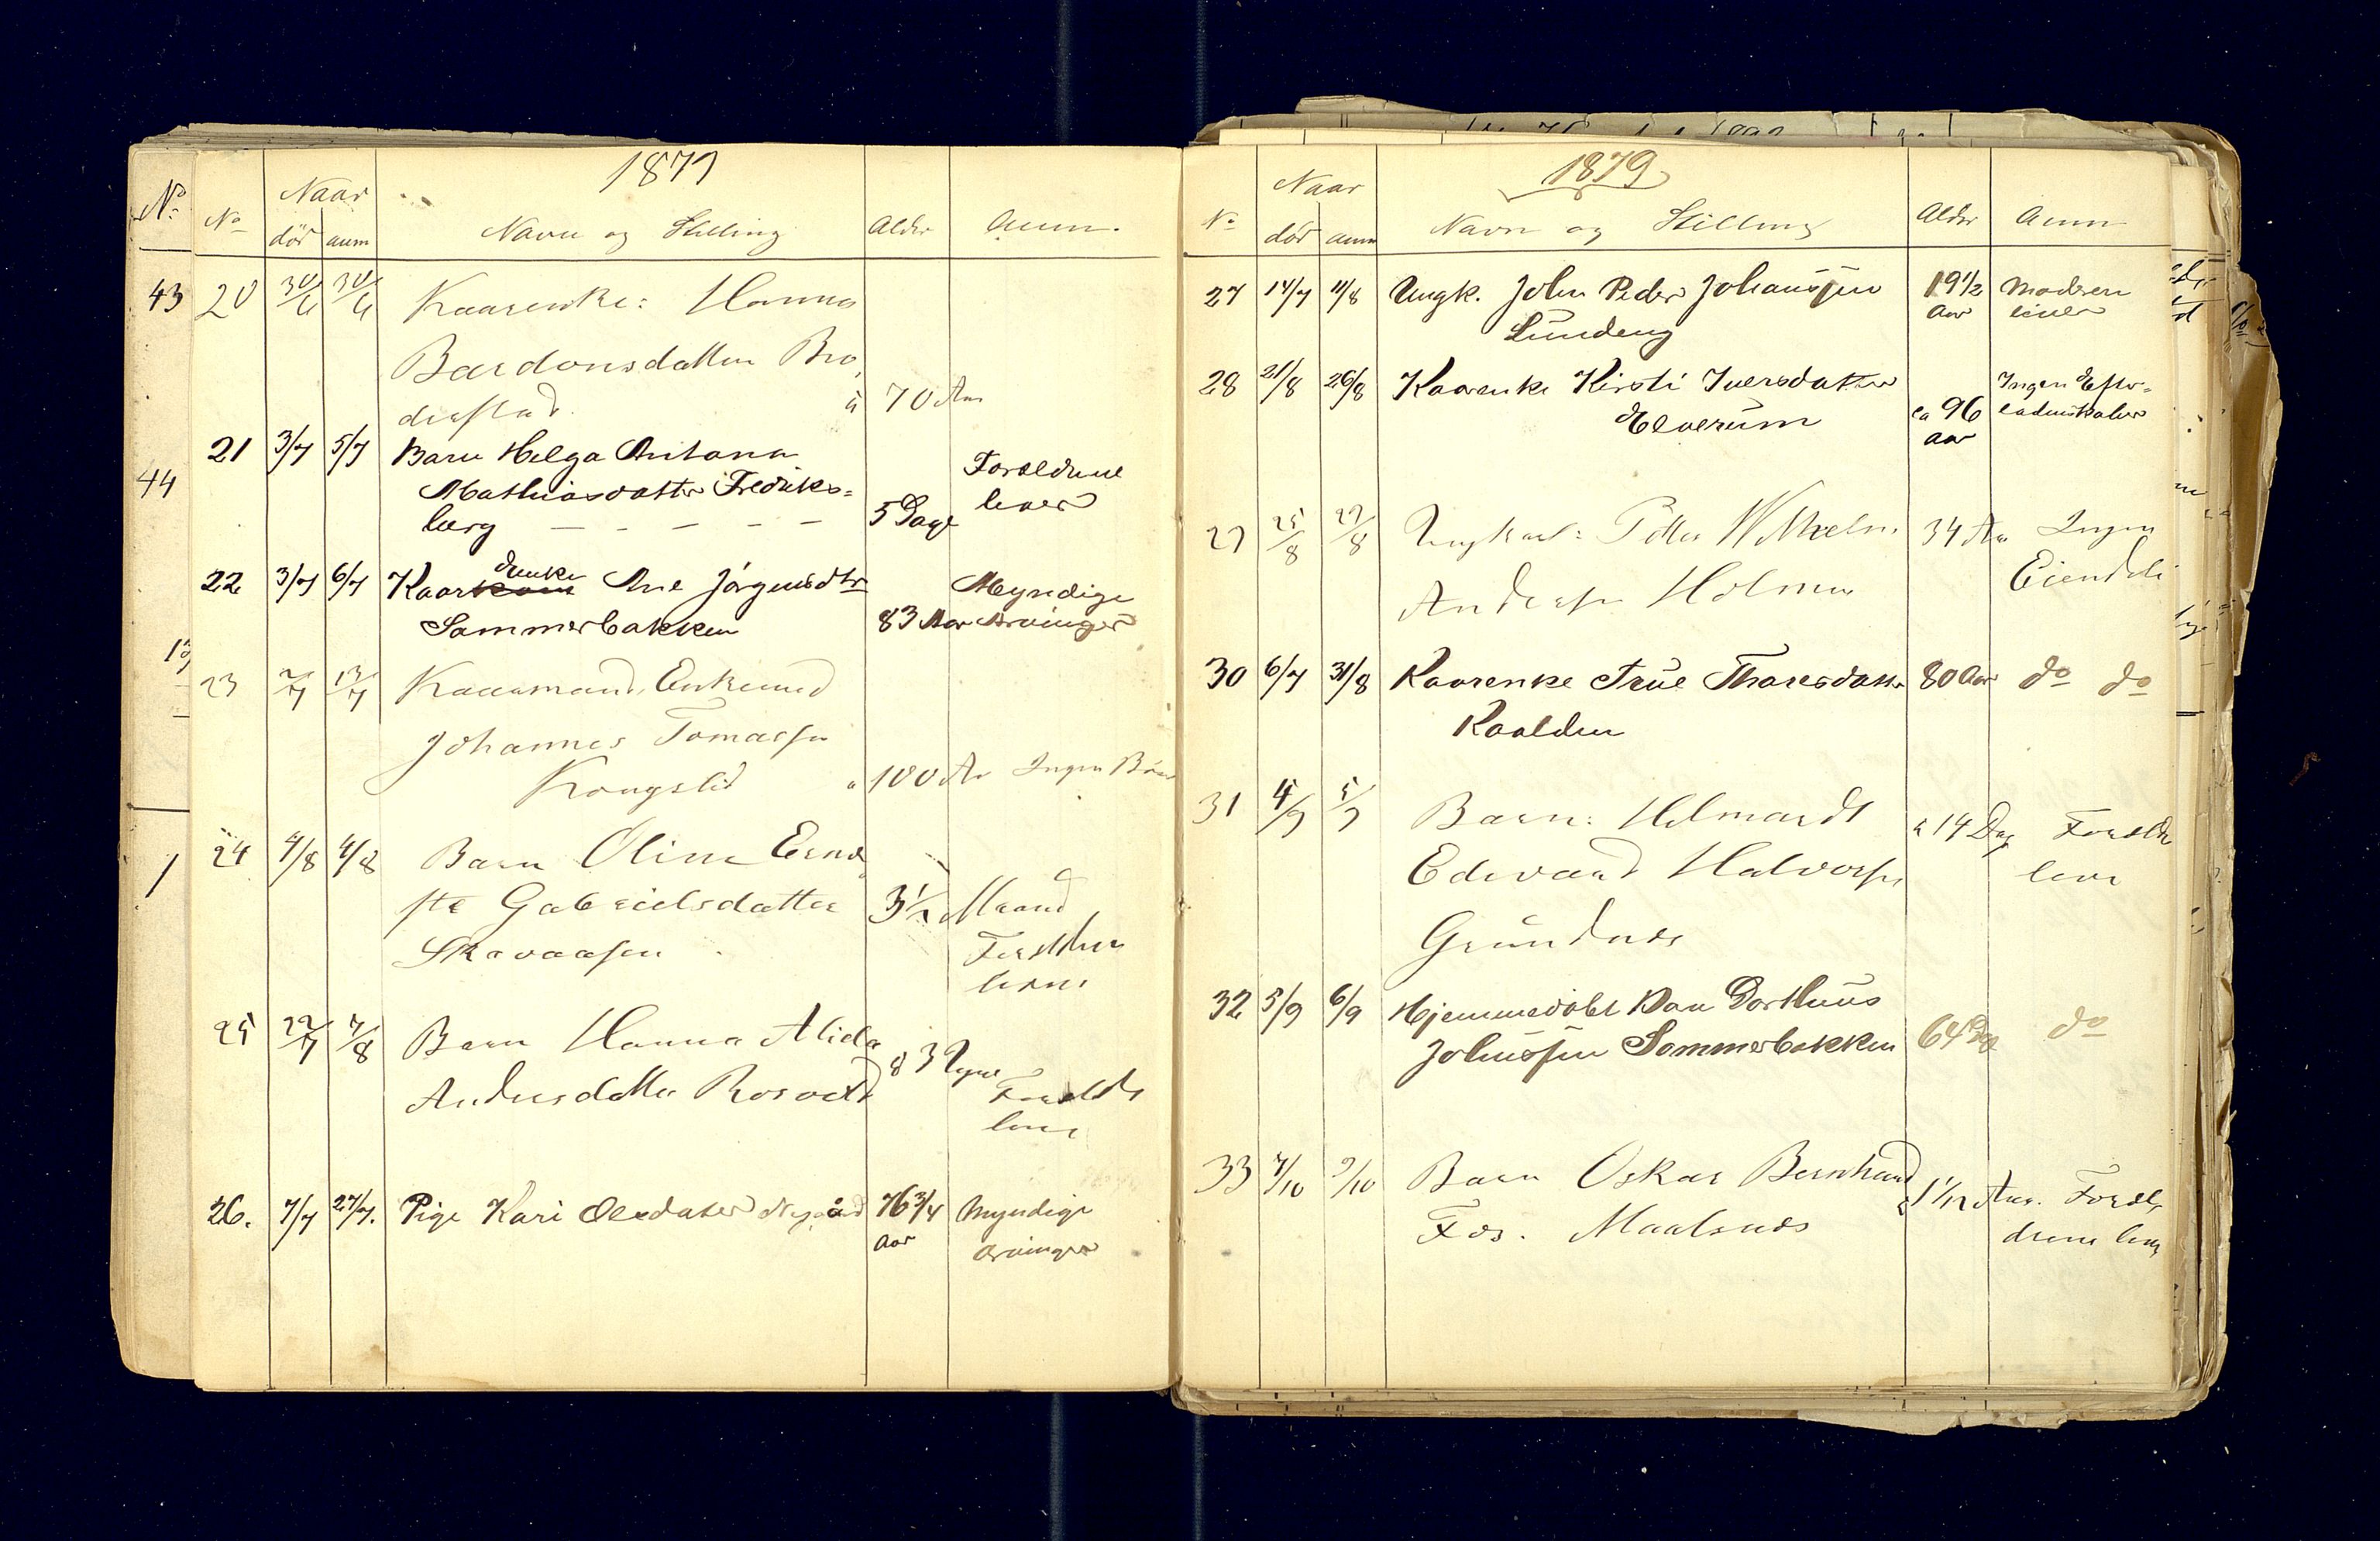 1879
No
No
Naar
död
anm
Navn og Stilling
Alder
Anm.
43
20 30/6 30/6 Kaarenke: Hanna
Bardonsdatter Bro,
derstad. à 70 Aar
21 3/7 5/7 Barn Helga Antona
44
Mathiasdatter Fredriks=
berg — — — — — 5 Dage
Forældrene
lever
22 3/7 6/7 Kaarkone enke Ane Jörgensdtr
Sommerbakken 83 Aar
Myndige
Arvinger
23 2/7 13/7 Kaarmand, Enkemd
Johannes Tomassen
Kongslid a 100 Aar Ingen Börn
24 4/8 4/8 Barn Oline Erne
ste Gabrielsdatter 3 1/2 Maaned
Skovaasen
Forældrene
lever
1
25 22/7 7/8 Barn Hanna Alida
Andersdatter Rosvold a 3 Uger
Forældr
lever
26. 7/7 27/7. Pige Kari Olesdatter Nygård 76 3/4
Aar
Myndige
arvinger
1879
No
Naar
död
anm
Navn og Stilling
Alder
Anm
27 14/7 11/8 Ungk. John Peder Johanssen 19 1/2
Lundeng
Aar
Moderen
lever
28 21/8 26/8 Kaarenke Kirsti Iversdatter
Elverum
ca 96
Aar
Ingen Efter=
ladenskaber
29 25/8 27/8 Ungkarl: Petter Wilhelm 34 Aar Ingen
Andersen Holmen Eiendele
30 6/7 31/8 Kaarenke Frue Tharesdatter 80 Aar do do
Kaalden
31 4/9 5/9 Barn: Hilmardt
Edvard Halvorsen à 14 Dag Forældr
Grundnes
lever
32 5/9 6/9 Hjemmedöbt Dan Dortheus
Johnssen Sommerbakken 64 Dg do
33 7/10 9/10 Barn Oskar Bernhard
Fos. Maalsnes à 1 1/12 Aar. Foræl,
drene lever